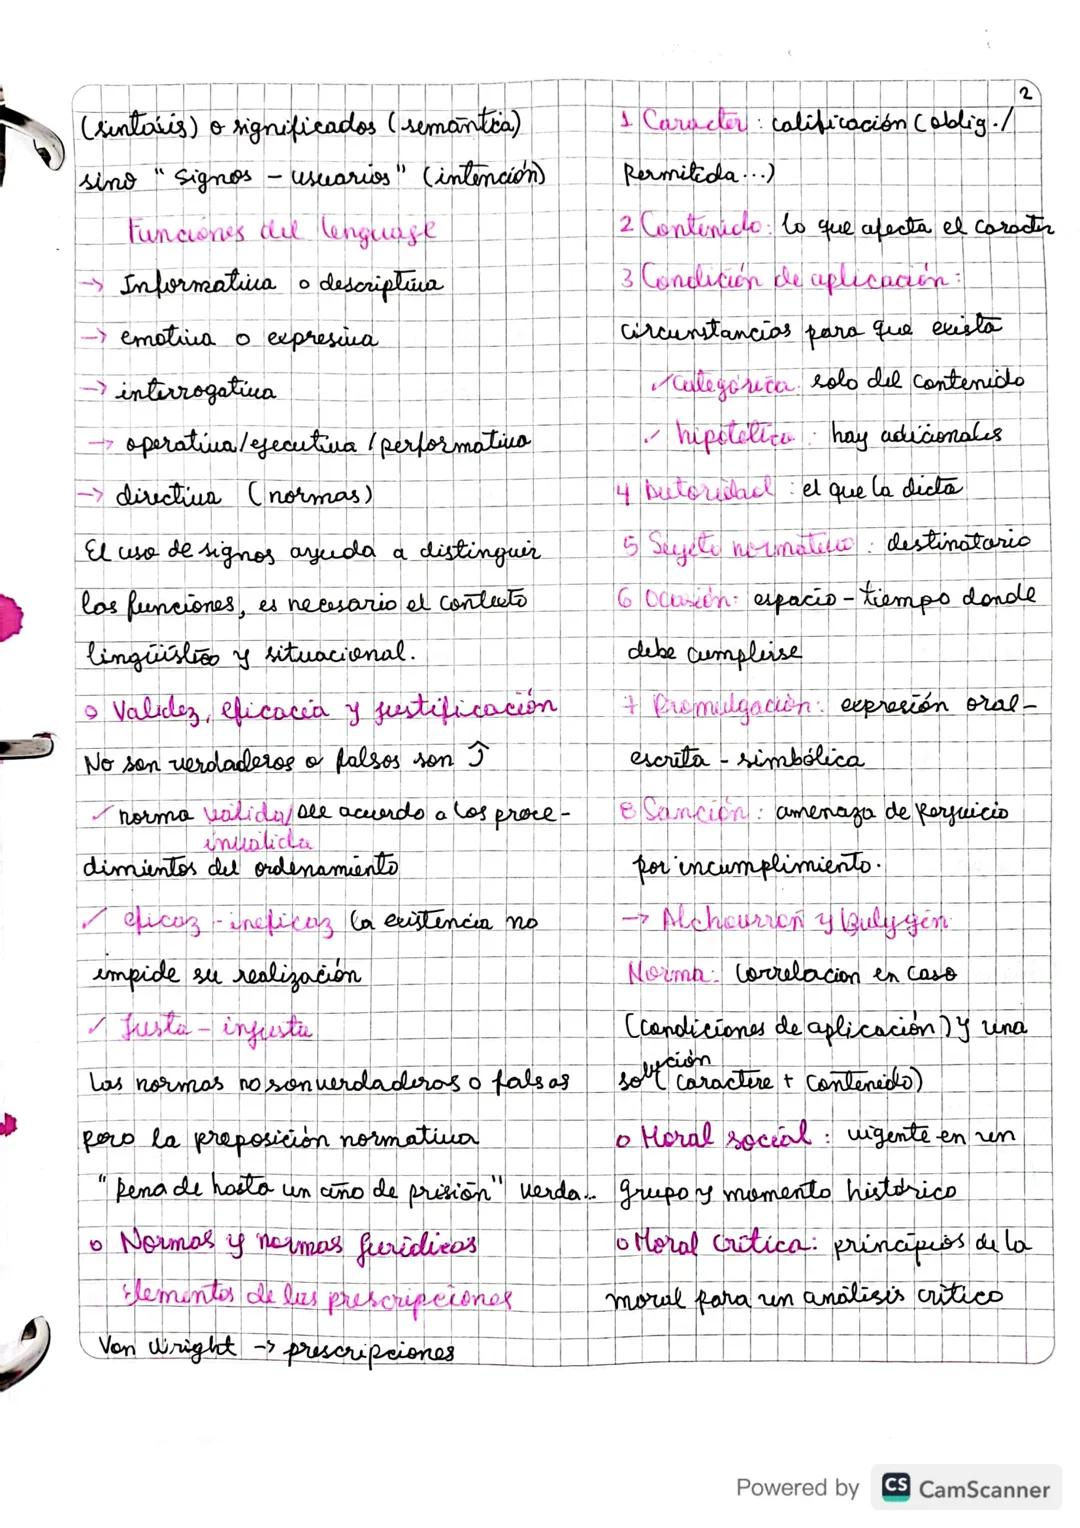 2
(sintaxis) o significados (semántica)
sino "signos - usuarios" (intención)
Funciones del lenguage
-> Informativa o descriptiva
-> emotiva o expresiva
-> interrogativa
-> operativa/ejecutiva/performativa
-> directiva (normas)
El uso de signos ayuda a distinguir
las funciones, es necesario el contexto
lingüístico y situacional.
o Validez, eficacia y justificación
No son verdaderos o falsos son ↑
✓ norma valida/ de acuerdo a los proce-
invalida
dimientos del ordenamiento
✓ eficaz - ineficaz la existencia no
impide su realización
✓ Justa - injusta
Las normas no son verdaderas o falsas
pero la preposición normativa
"pena de hasta un año de prisión" verda..
o Normas y normas jurídicas
Elementos de las prescripciones
Von Wright -> prescripciones
1 Caracter: calificación (oblig./
Permitida...)
2 Contenido: lo que afecta el caracter
3 Condición de aplicación:
circunstancias para que exista
✓ categórica: solo del contenido
✓ hipotetica: hay adicionales
4 Autoridad: el que la dicta
5 Sujeto normativo: destinatario
6 Ocasión: espacio - tiempo donde
debe cumplirse
7 Promulgación: expresión oral-
escrita - simbólica
8 Sanción: amenaza de perjuicio
por incumplimiento.
-> Alchourron y Bulygin
Norma: Correlacion en caso
(condiciones de aplicación) y una
solución (caractere + contenido)
o Moral social: vigente en un
grupo y momento histórico
o Moral crítica: principios de la
moral para un análisis crítico
Powered by CS CamScanner